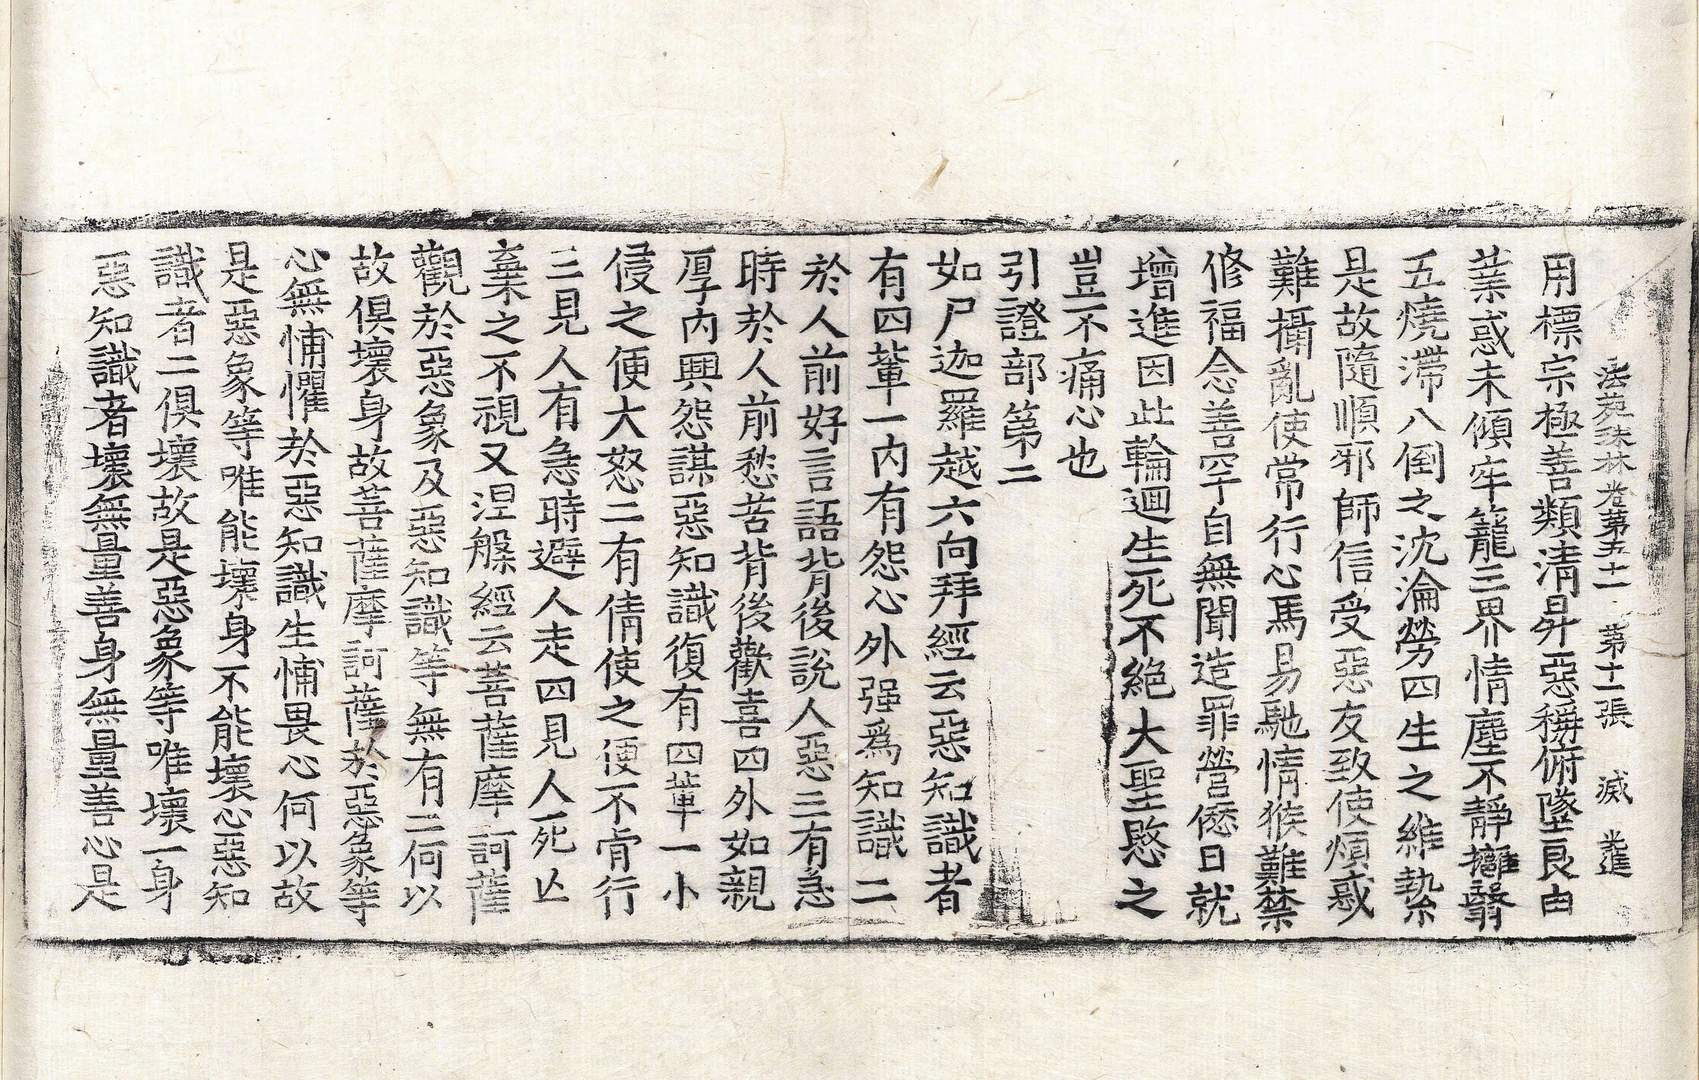 法苑珠林卷第五十一 第十一張 滅 進
用標宗極善類淸昇惡稱俯墜良由
業惑未傾牢籠三界情塵不靜擁翳
五燒滯八倒之沈淪勞四生之維縶
是故隨順邪師信受惡友致使煩惑
難攝亂使常行心馬易馳情猴難禁
修福念善罕自無聞造罪營㒃日就
增進因此輪迴生死不絕大聖愍之
豈不痛心也
引證部第二
如尸迦羅越六向拜經云惡知識者
有四輩一內有怨心外强爲知識二
於人前好言語背後說人惡三有急
時於人前愁苦背後歡喜四外如親
厚內興怨謀惡知識復有四輩一小
侵之便大怒二有倩使之便不肯行
三見人有急時避人走四見人死亡
棄之不視又涅槃經云菩薩摩訶薩
觀於惡象及惡知識等無有二何以
故俱壞身故菩薩摩訶薩於惡象等
心無怖懼於惡知識生怖畏心何以故
是惡象等唯能壞身不能壞心惡知
識者二俱壞故是惡象等唯壞一身
惡知識者壞無量善身無量善心是